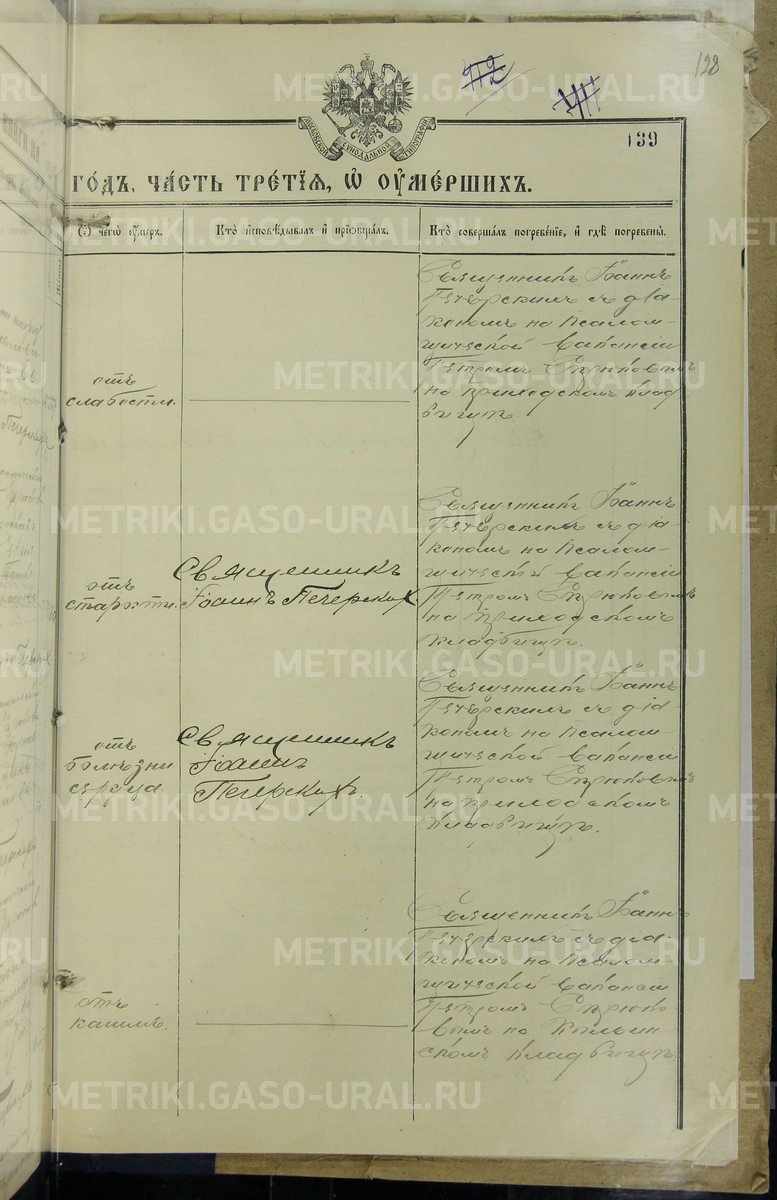 128
139
МОСКОВСКОЙ СИНОДАЛЬНОЙ ТИПОГРАФІИ
го́дъ, ча́сть тре́тїѧ, ѡ҆ ᲂу҆ме́ршихъ.
Ѿ чегѡ̀ ᲂу҆́меръ.
Кто̀ и҆сповѣ́дывалъ и҆ прїѡбща́лъ.
Кто̀ соверша́лъ погребе́нїе, и҆ гдѣ̀ погребены̀.
отъ
слабости.
Священникъ Іоаннъ
Печерскихъ съ діа-
кономъ на псалом-
щической вакансіи
Петромъ
на приходскомъ клад
бищѣ.
отъ
старости.
Священникъ
Іоаннъ Печерских
Священникъ Іоаннъ
Печерскихъ съ діа-
кономъ на псалом-
щической вакансіи
Петромъ
на приходскомъ
кладбищѣ.
отъ
болѣзни
сердца.
Священникъ
Іоаннъ
Печерскихъ.
Священникъ Іоаннъ
Печерскихъ съ діа
кономъ на псалом
щической вакансіи
Петромъ
на приходскомъ
кладбищѣ.
отъ
кашля.
Священникъ Іоаннъ
Печерскихъ съ діа-
кономъ на псалом-
щической вакансіи
Петромъ
вымъ на
скомъ кладбищѣ
METRIKI.GASO-URAL.RU